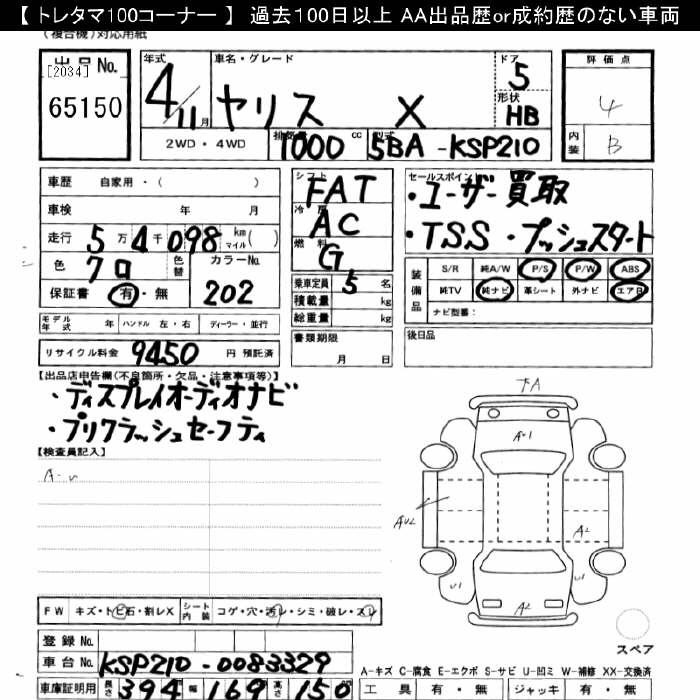 【 トレタマ100コーナー 】 過去100日以上 AA出品歴or成約歴のない車両
(複合機)対応用紙
出品No. [2034] 65150
年式 4/11月
車名・グレード ヤリス X
ドア 5 形状 HB
評価点 4
内装 B
2WD・4WD 排気量 1000 cc 型式 5BA-KSP210
車歴 自家用・( )
車検 年 月
走行 5万4千098 km マイル( )
色 クロ 色替 カラーNo. 202
保証書 有・無
モデル年式 年 ハンドル 左・右 ディーラー・並行
リサイクル料金 9450 円 預託済
シフト FAT
冷房 AC
燃料 G
乗車定員 5 名
積載量 kg
総重量 kg
書類期限 月 日
セールスポイント
・ユーザー買取
・TSS ・プッシュスタート
装備品 S/R 純A/W P/S P/W ABS
純TV 純ナビ 革シート 外ナビ エアB
ナビ型番:
後日品
【出品店申告欄(不良箇所・欠品・注意事項等)】
・ディスプレイオーディオナビ
・プリクラッシュセーフティ
【検査員記入】
A-U
下A
AU1
AU2
A2
U1
U1
A2
スペア
FW キズ・トビ石・割レX シート内装 コゲ・穴・汚レ・シミ・破レ・スレ
登録No.
車台No. KSP210-0083329
車庫証明用 長さ 394 幅 169 高さ 150
A-キズ C-腐食 E-エクボ S-サビ U-凹ミ W-補修 XX-交換済
工具 有・無 ジャッキ 有・無